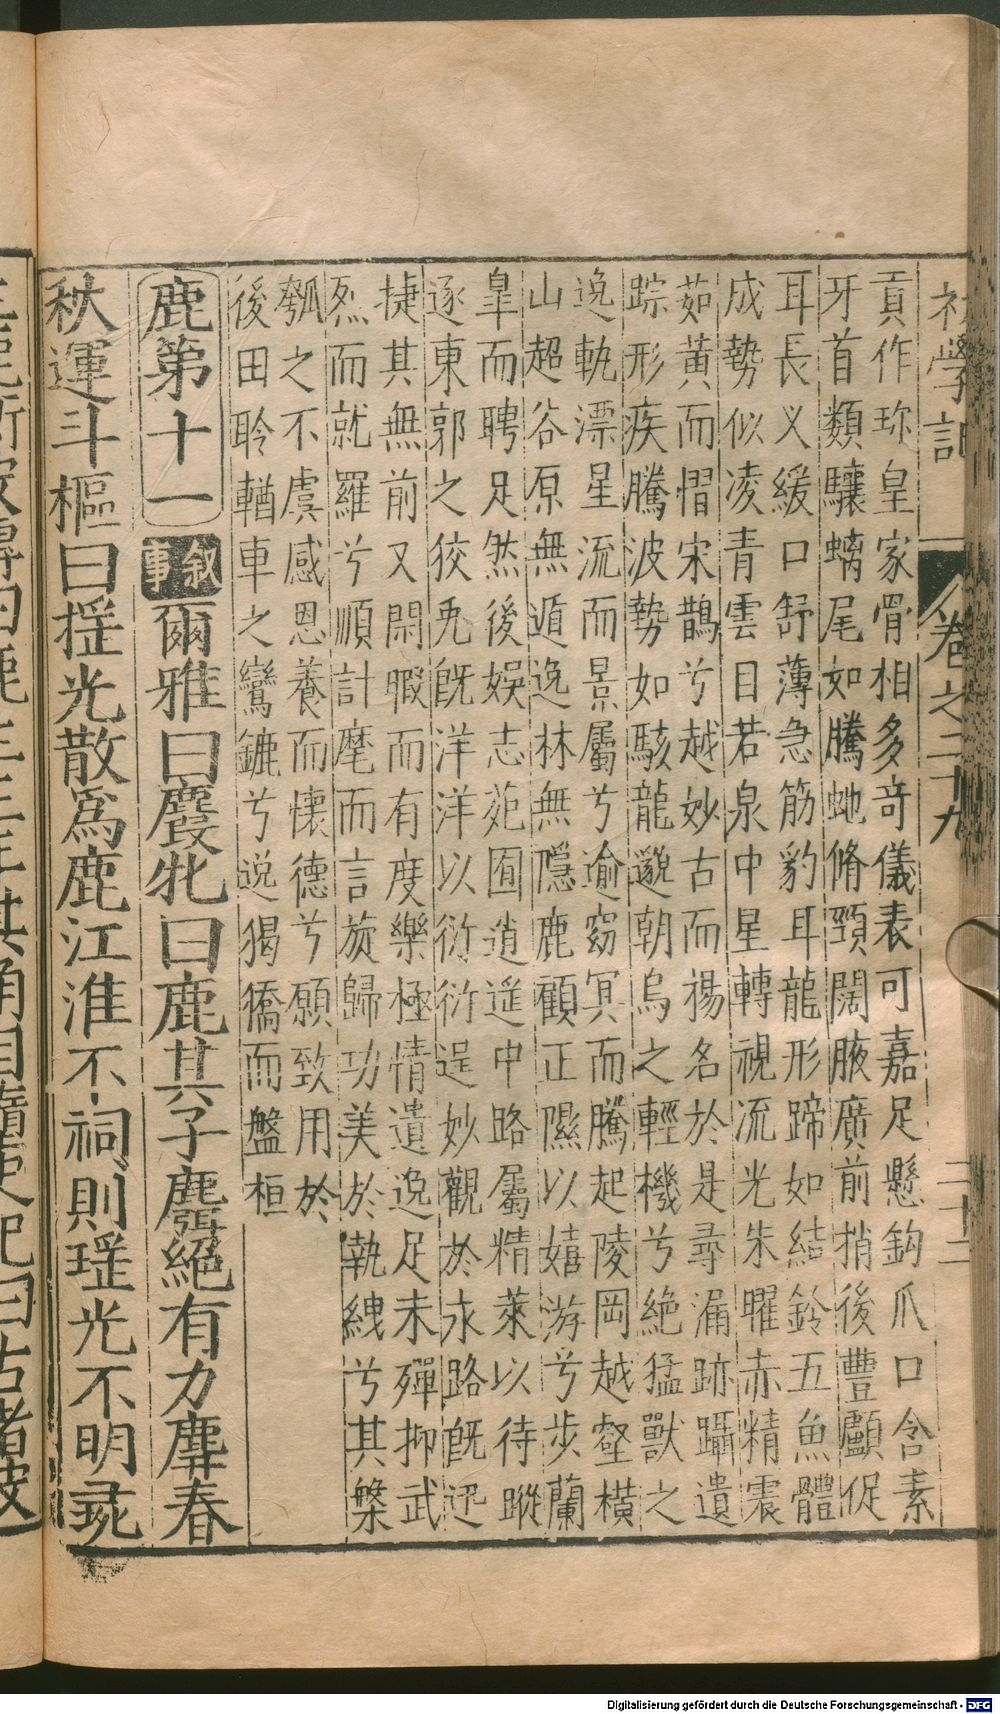 初學記 卷之二十九 二十二
貢作珎皇家骨相多奇儀表可嘉足懸鈎爪口含素
牙首類驤螭尾如騰虵脩頸闊腋廣前捎後豐顱促
耳長义緩口舒薄急筋豹耳龍形蹄如結鈴五魚體
成勢似凌青雲目若泉中星轉視流光朱曜赤精震
茹黃而慴宋鵲兮越妙古而揚名於是尋漏跡躡遺
踪形疾騰波勢如駭龍邈朝烏之輕機兮絶猛獸之
逸軌漂星流而景屬兮逾窈冥而騰起陵岡越壑橫
山超谷原無遁逸林無隱鹿顧正隰以嬉游兮步蘭
皐而聘足然後娛志苑囿逍遥中路屬精萊以待蹤
逐東郭之狡兎旣洋洋以衍衍逞妙觀於永路旣迅
捷其無前又閑暇而有度樂極情遺逸足未殫抑武
烈而就羅兮順計麾而言旋歸功美於執緤兮其槃
瓠之不虞感恩養而懷德兮願致用於
後田聆輶車之鸞鑣兮逸猲獢而盤桓
鹿第十一 叙事 爾雅曰麚牝曰鹿其子麛絕有力麉春
秋運斗樞曰揺光散爲鹿江淮不祠則瑶光不明
Digitalisierung gefördert durch die Deutsche Forschungsgemeinschaft - DFG